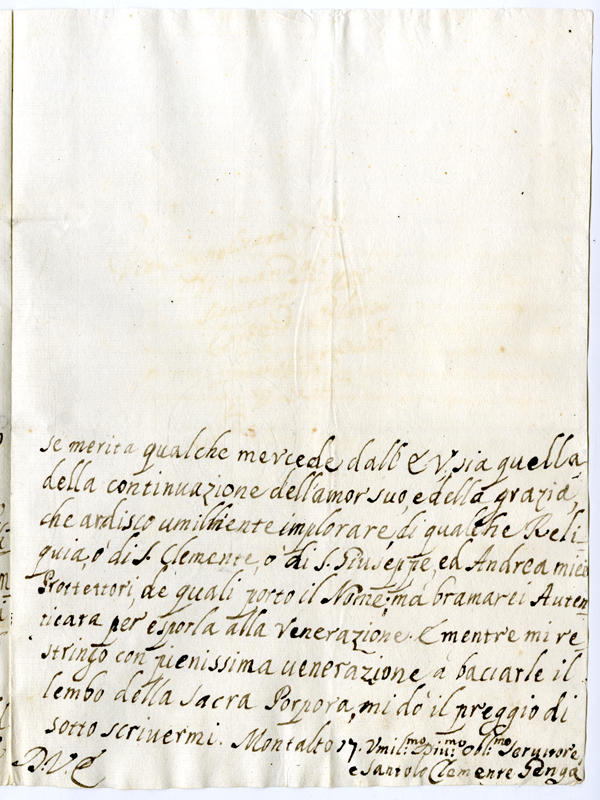 se merita qualche mercede dall' E V. sia quella
della continuazione dell amor suo, e della grazia,
che ardisco umilmente implorare, di qualche Reli-
quia, ò di S. Clemente, o di S. Giuseppe, ed Andrea miei
Prottettori, de quali porto il Nome; ma bramarei Auten-
ticata per esporla alla Venerazione. E mentre mi re-
stringo con pienissima uenerazione à bacciarle il
lembo della sacra Porpora, mi dò il preggio di
sotto scriuermi. Montalto 17. Vmil:mo Diu:mo Obl:mo Seruitore,
D. V. E e Santolo Clemente Genga